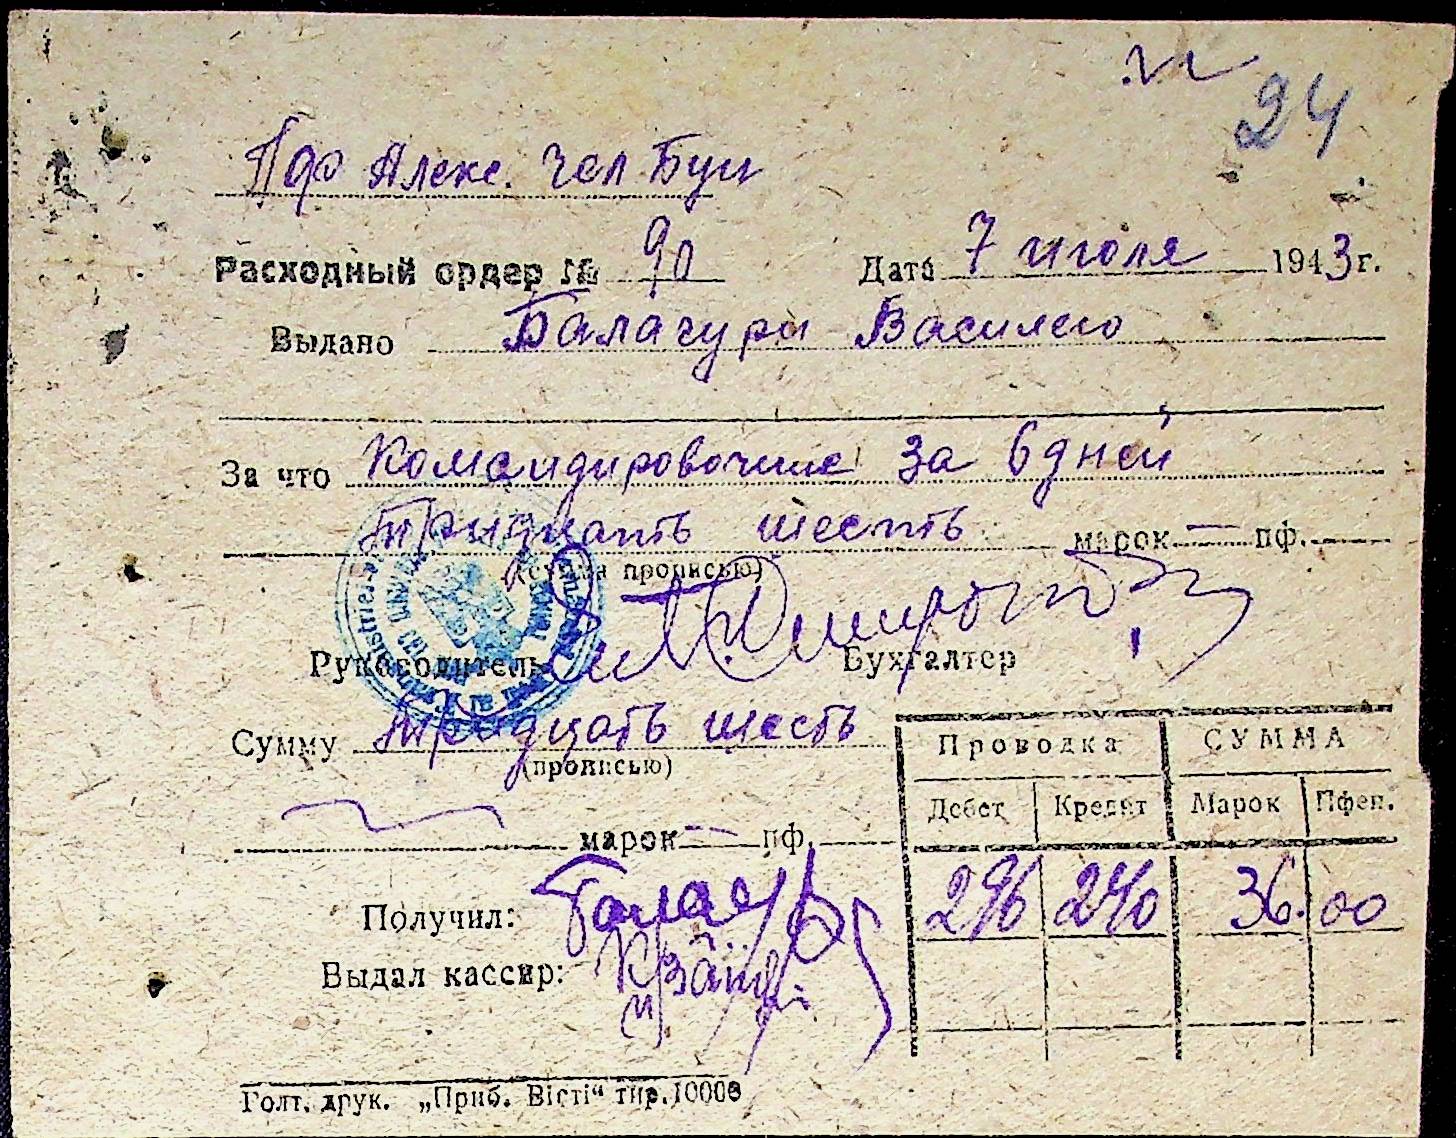 24
Алекс.
Расходный ордер № 90 Дата 7 июля 1943 г.
Выдано Балачури Василею
За что Командировочние за 6 дней
тридцать шесть марок — пф.
(сумма прописью)
Руководитель Бухгалтер
Сумму тридцать шесть
(прописью)
марок — пф.
Получил:
Выдал кассир:
Проводка СУММА
Дебет Кредит Марок Пфен.
296 240 36. 00
Голт. друк. „Приб. Вісті“ тир. 10000